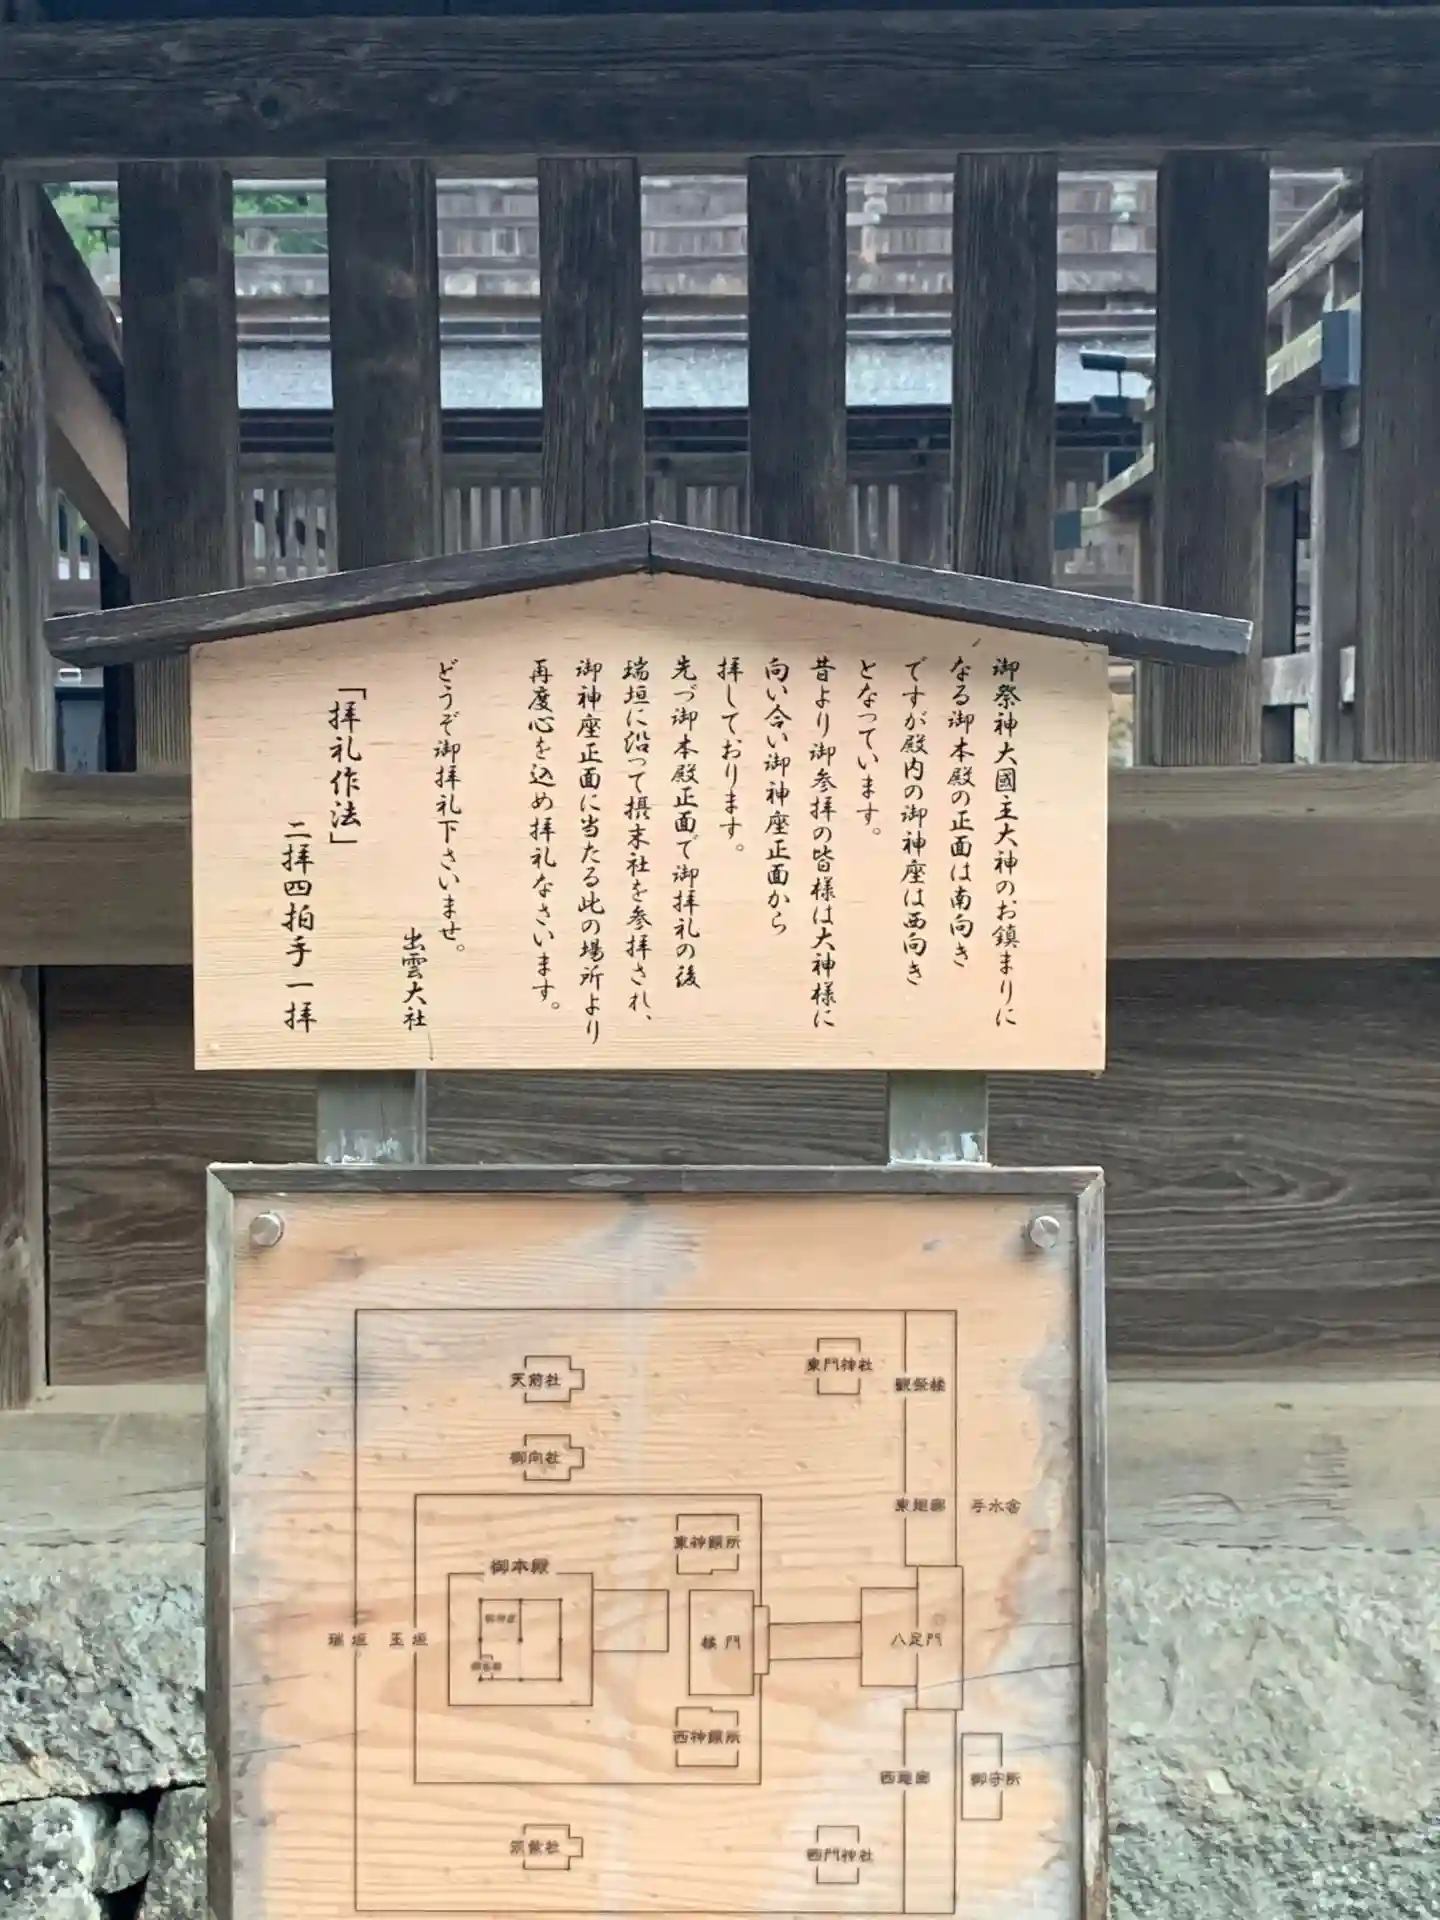 御祭神大國主大神のお鎮まりに
なる御本殿の正面は南向き
ですが殿内の御神座は西向き
となっています。
昔より御参拝の皆様は大神様に
向い合い御神座正面から
拝しております。
先づ御本殿正面で御拝礼の後
瑞垣に沿って摂末社を参拝され、
御神座正面に当たる此の場所より
再度心を込め拝礼なさいます。
どうぞ御拝礼下さいませ。
出雲大社
「拝礼作法」
二拝四拍手一拝
天前社
東門神社
観祭楼
御向社
東廻廊
手水舎
東神饌所
御本殿
御神座
瑞垣
玉垣
楼門
八足門
西神饌所
西廻廊
御守所
筑紫社
西門神社